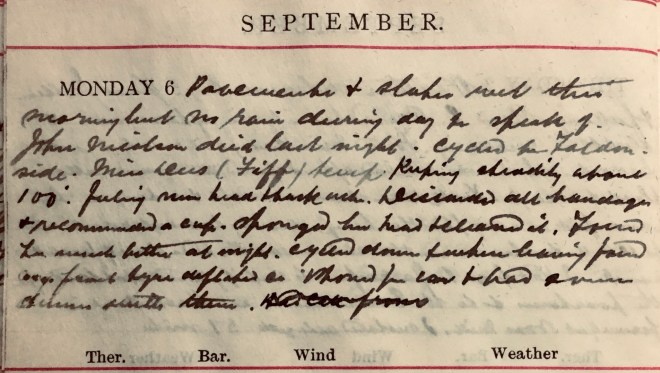 SEPTEMBER.
MONDAY 6 Pavements & slates wet this
morning but no rain during day to speak of.
John Nicolson died last night. Cycled to
side. Miss (Tiff) temp keeping steadily about
100°. feeling head & back ach. Discarded all bandages
& recommended a cup. Sponged her head & cleaned it. Found
her much better at night. Cycled down & when leaving found
my front tyre deflated so 'phoned for car & had
dinner with them.
Ther. Bar. Wind Weather